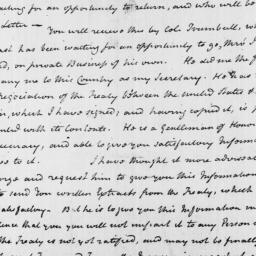 waiting for an opportunity to return, and who will be
Letter —
You will receive this by Col. Trumbull, wh
has been waiting for an opportunity to go, thro'
on private Business of his own. He did me the f
any me to this Country as my Secretary. He was
negociation of the Treaty between the united States &
in, which I have signed; and having copied it, is
nted with its Contents. He is a Gentleman of Honor
ecrecy, and able to give you satisfactory Inform
to it. I have thought it more
and request him to give you this Information
to send you written Extracts from the Treaty, which
atisfactory. But he is to give you this Information in
ence that you will not impart it to any Person
The Treaty is not yet ratified, and may not be finally